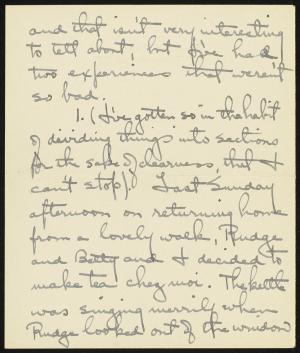 and that isn't very interesting
to tell about! but I've had
two experiences that weren't
so bad.
1. (I've gotten so in the habit
of dividing things into sections
for the sake of clearness, that I
can't stop). Last Sunday
afternoon on returning home
from a lovely walk, Rudge
and Betty and I decided to
make tea chez moi. The kettle
was singing merrily when
Rudge looked out of the window